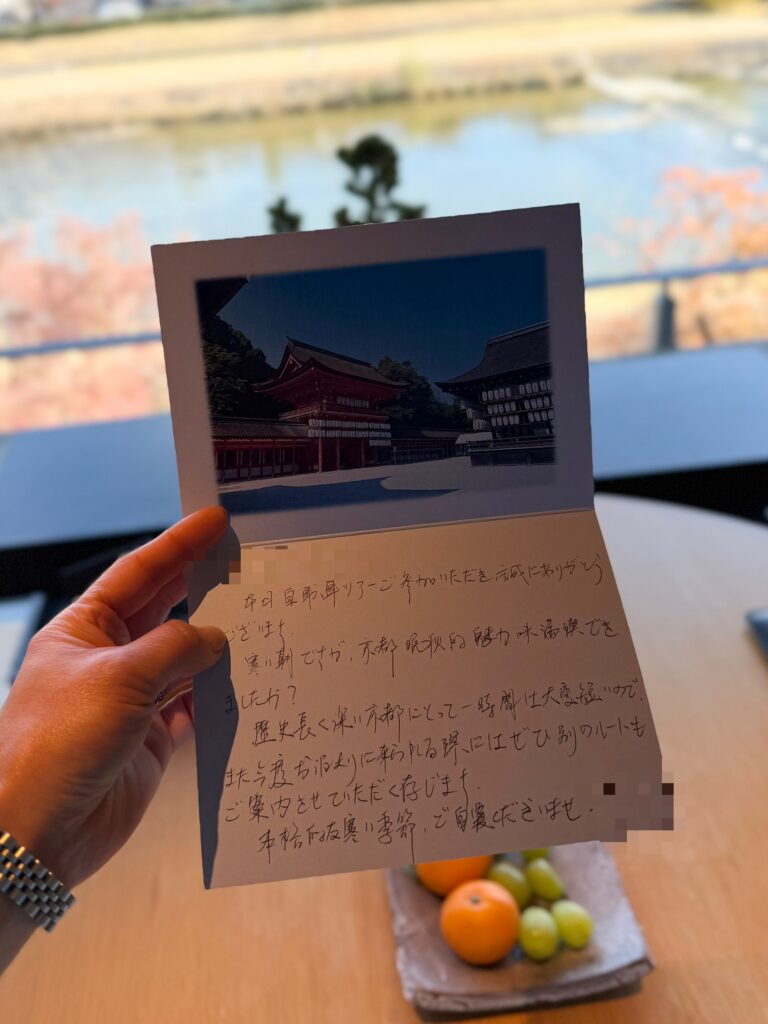 本日自転車ツアーご参加いただき誠にありがとう
ございます。
寒い朝ですが、京都晩秋的魅力味満喫でき
ましたか?
歴史長く深い京都にとって一時間は大変短いので、
また今度お泊りに来られる際にはぜひ別のルートも
ご案内させていただく存じます。
本格的な寒い季節、ご自愛くださいませ。